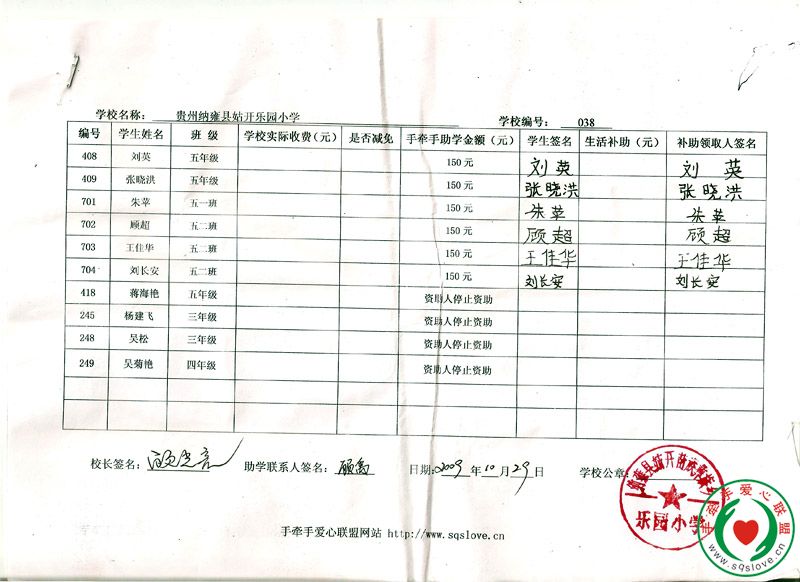 学校名称： 贵州纳雍县姑开乐园小学 学校编号： 038
编号 学生姓名 班 级 学校实际收费（元） 是否减免 手牵手助学金额（元） 学生签名 生活补助（元） 补助领取人签名
408 刘英 五年级 150 元 刘英 刘英
409 张晓洪 五年级 150 元 张晓洪 张晓洪
701 朱苹 五一班 150 元 朱苹 朱苹
702 顾超 五二班 150 元 顾超 顾超
703 王佳华 五二班 150 元 王佳华 王佳华
704 刘长安 五二班 150 元 刘长安 刘长安
418 蒋海艳 五年级 资助人停止资助
245 杨建飞 三年级 资助人停止资助
248 吴松 三年级 资助人停止资助
249 吴菊艳 四年级 资助人停止资助
校长签名： 助学联系人签名： 日期：2009 年 10 月 29 日 学校公章：
乐园小学
手牵手爱心联盟
www.sqslove.cn
手牵手爱心联盟网站 http://www.sqslove.cn